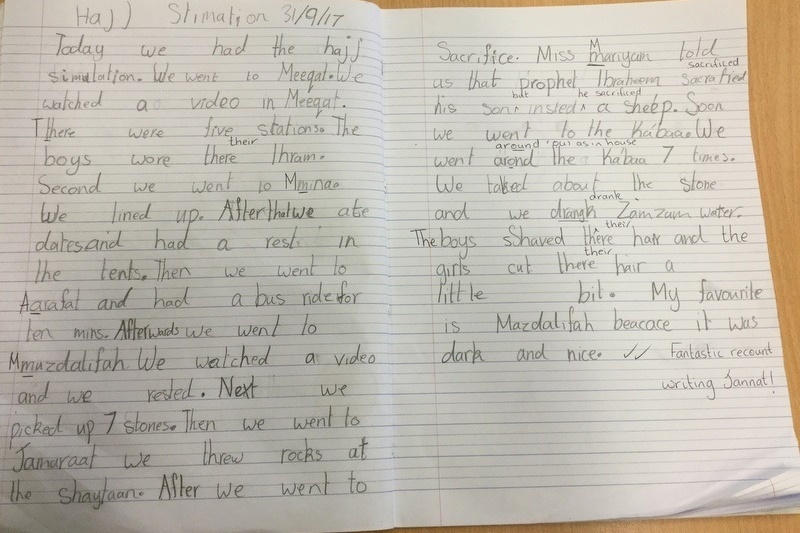 Hajj Stimation 31/9/17
Today we had the hajj
simulation. We went to Meeqat. We
watched a video in Meeqat.
There were five stations. The
their
boys wore there Ihram.
Second we went to Mminao
We lined up. After that we ate
dates and had a rest in
the tents. Then we went to
Aarafat and had a bus ride for
ten mins. Afterwads we went to
Mmuzdalifah We watched a video
and we rested. Next we
picked up 7 stones. Then we went to
Jamaraat we threw rocks at
the shaytaan. After we went to
Sacrifice. Miss Mariyam told
sacrificed
us that prophet Ibraheem sacrafied
but he sacrificed
his son^ insted^ a sheep. Soon
we went to the Kabaa. We
around 'oul as in house
went arond the Kabaa 7 times.
We talked about the stone
drank
and we drangk Zamzam water.
their
The boys Shaved there hair and the
their
girls cut there hair a
little bit. My favourite
is Mazdalifah beacace it was
dark and nice. ✓✓ Fantastic recount
writing Jannat!